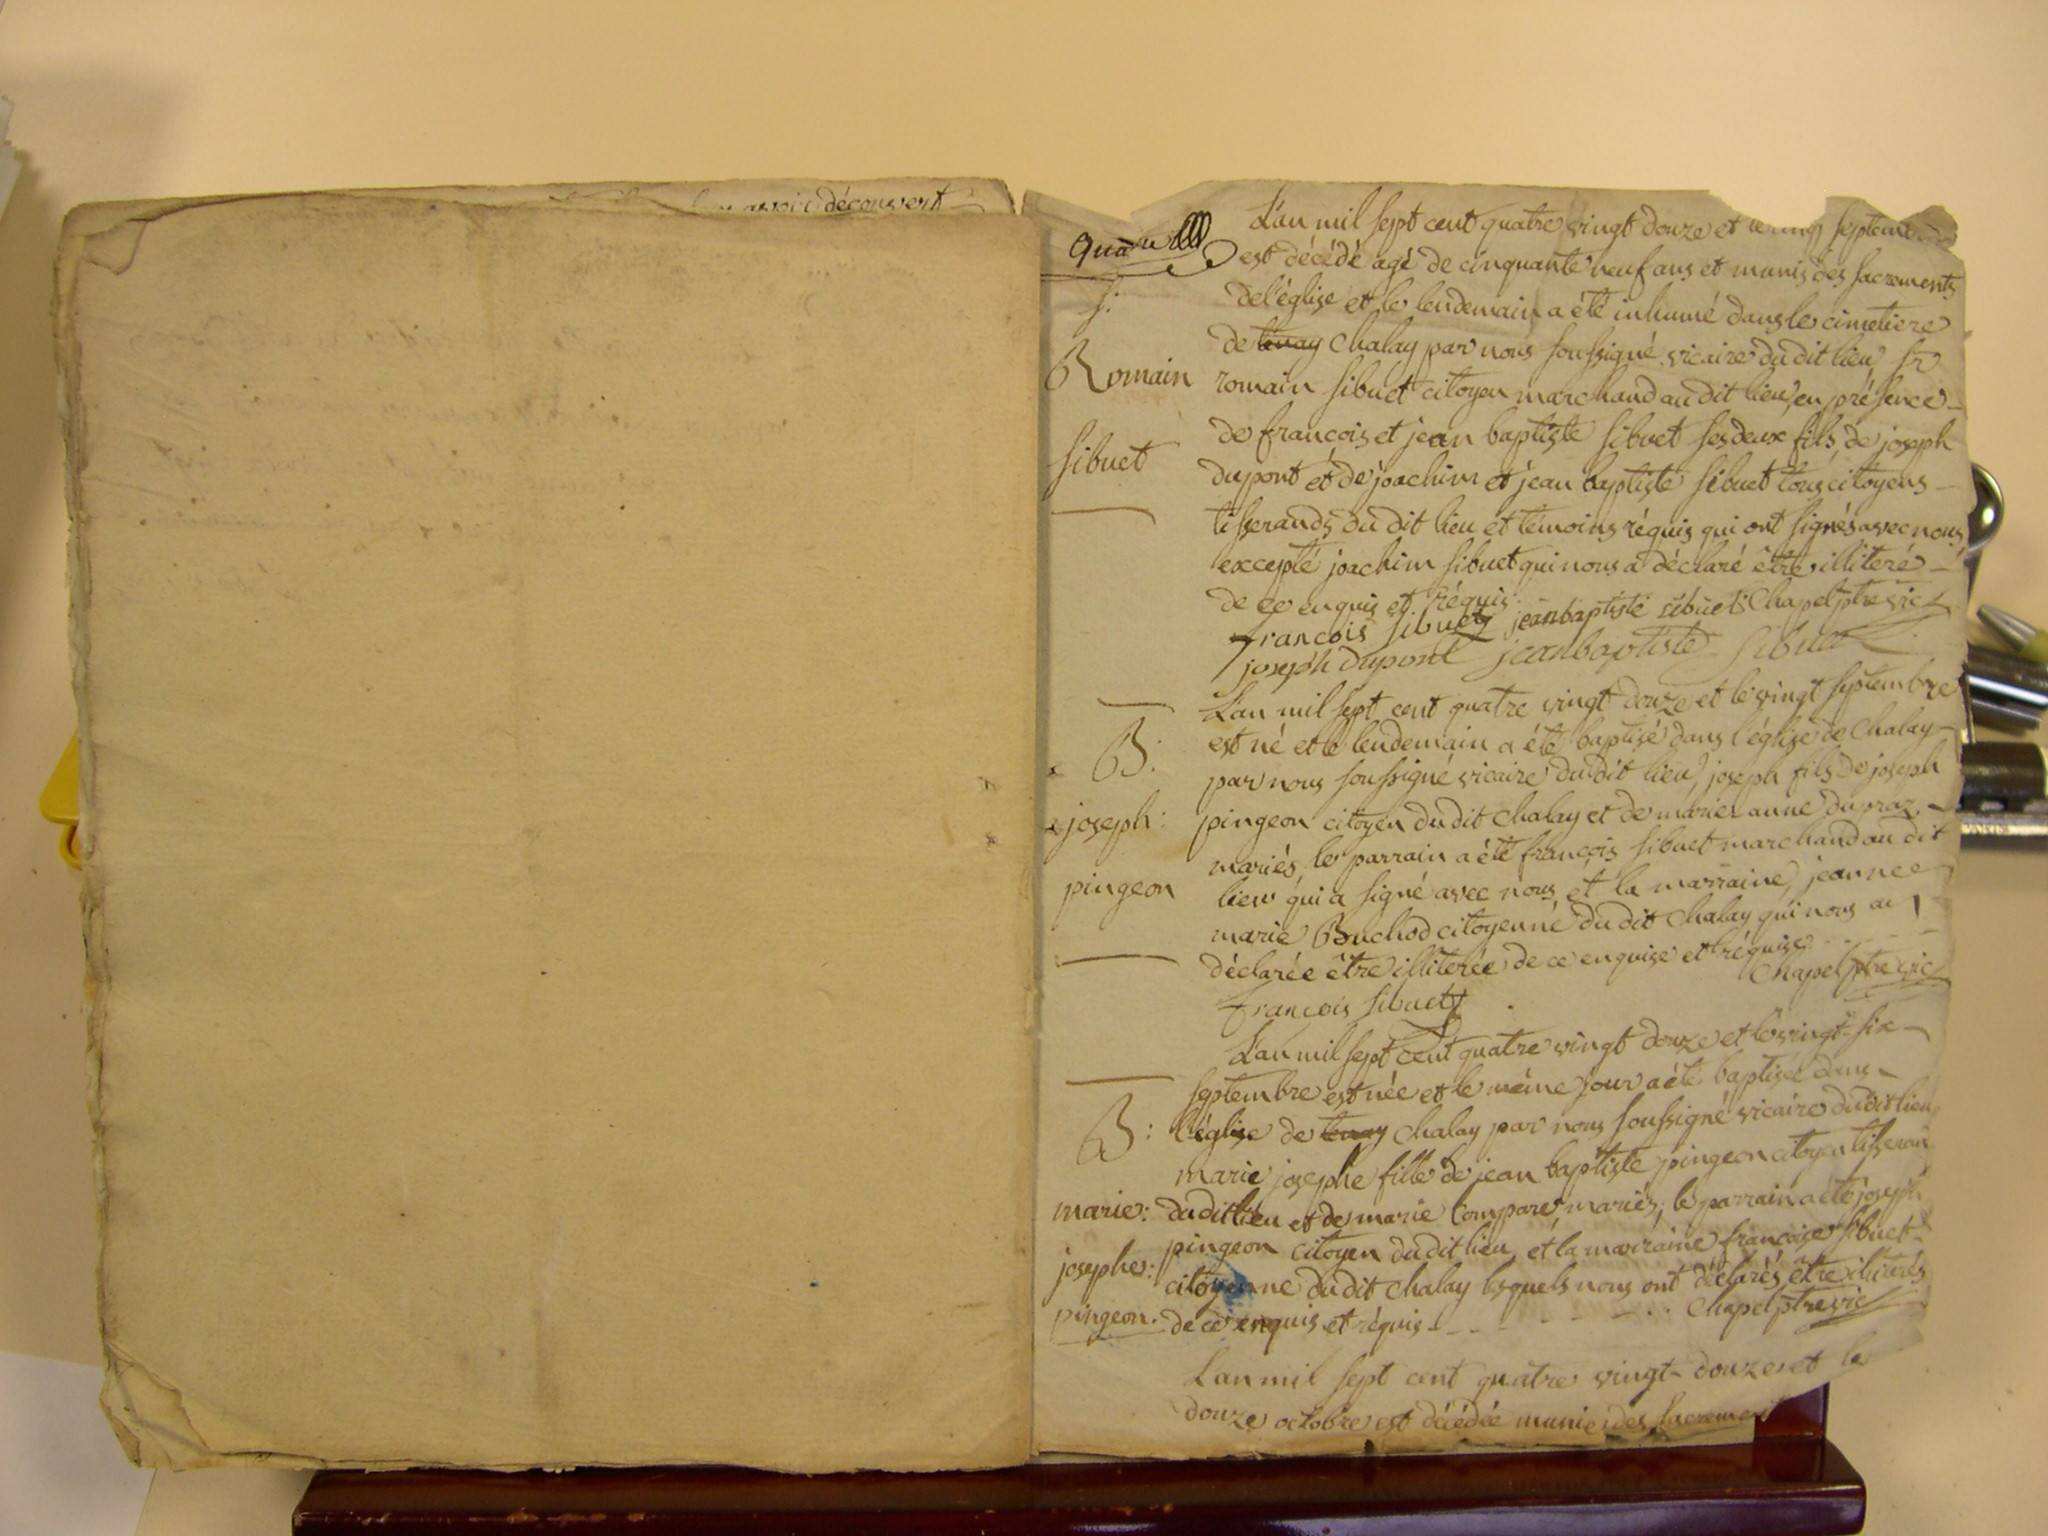 avoir découvert
quatre
L'an mil sept cent quatre vingt douze et le septembre
est décédé agé de cinquante neuf ans et munis des sacrements
de l'église et le lendemain a été inhumé dans le cimetiere
de tenay Chalay par nous soussigné vicaire du dit lieu, sr
romain sibuet citoyen marchand au dit lieu, en présence
de françois et jean baptiste sibuet ses deux fils, de joseph
dupont et de joachim et jean baptiste sibuet tous citoyens
tisserands du dit lieu et témoins réquis qui ont signés avec nous
excepté joachim sibuet qui nous a déclaré être illiteré
de ce enquis et réquis.
francois sibuet jean baptiste sibuet Chapel ptre vic
joseph dupont jean baptiste sibuet
S.
Romain
sibuet
L'an mil sept cent quatre vingt douze et le vingt septembre
est né et le lendemain a été baptisé dans l'église de Chalay
par nous soussigné vicaire du dit lieu, joseph fils de joseph
pingeon citoyen du dit Chalay et de marie anne dupraz
mariés, le parrain a été françois sibuet marchand au dit
lieu qui a signé avec nous et la marraine, jeanne
marie Buchod citoyenne du dit Chalay qui nous a
déclarée être illiterée de ce enquise et réquise
Chapel ptre vic
francois sibuet
B:
joseph:
pingeon
L'an mil sept cent quatre vingt douze et le vingt six
septembre est née et le même jour a été baptisée dans
l'église de tenay Chalay par nous soussigné vicaire du dit lieu
marie josephe fille de jean baptiste pingeon citoyen tisseran
du dit lieu et de marie Compare mariés, le parrain a été joseph
pingeon citoyen du dit lieu, et la marraine françoise sibuet
citoyenne du dit Chalay lesquels nous ont déclarés être illiterés
de ce enquis et réquis - - - - - - - . . Chapel ptre vic
B:
marie:
josephe:
pingeon.
L'an mil sept cent quatre vingt douze et le
douze octobre est décédée munie des sacrement